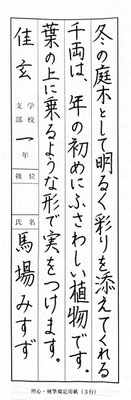 冬の庭木として明るく彩りを添えてくれる
千両は、年の初めにふさわしい植物です。
葉の上に乗るような形で実をつけます。
佳玄 支部 学校 一年 級位 氏名 馬場みすず
硬筆規定用紙（3行）